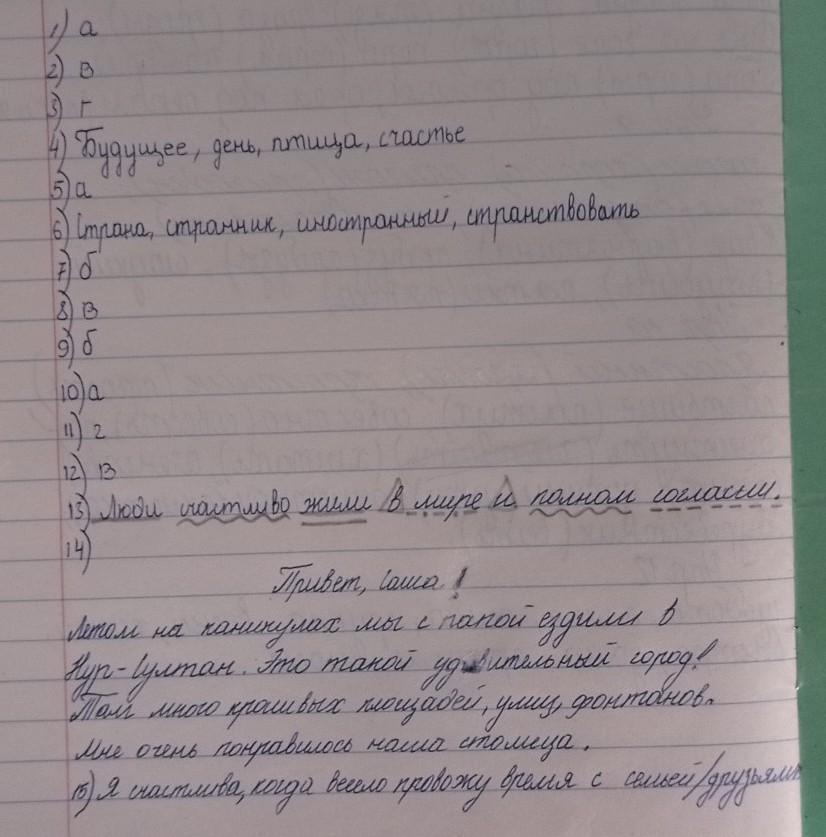 1) а
2) в
3) г
4) Будущее, день, птица, счастье
5) а
6) Страна, странник, иностранный, странствовать
7) б
8) в
9) б
10) а
11) г
12) в
13) Люди счастливо жили в мире и полном согласии.
14)
Привет, Саша!
Летом на каникулах мы с папой ездили в
Нур-Султан. Это такой удивительный город!
Там много красивых площадей, улиц, фонтанов.
Мне очень понравилось наша столица.
15) Я счастлива, когда весело провожу время с семьей/друзьями